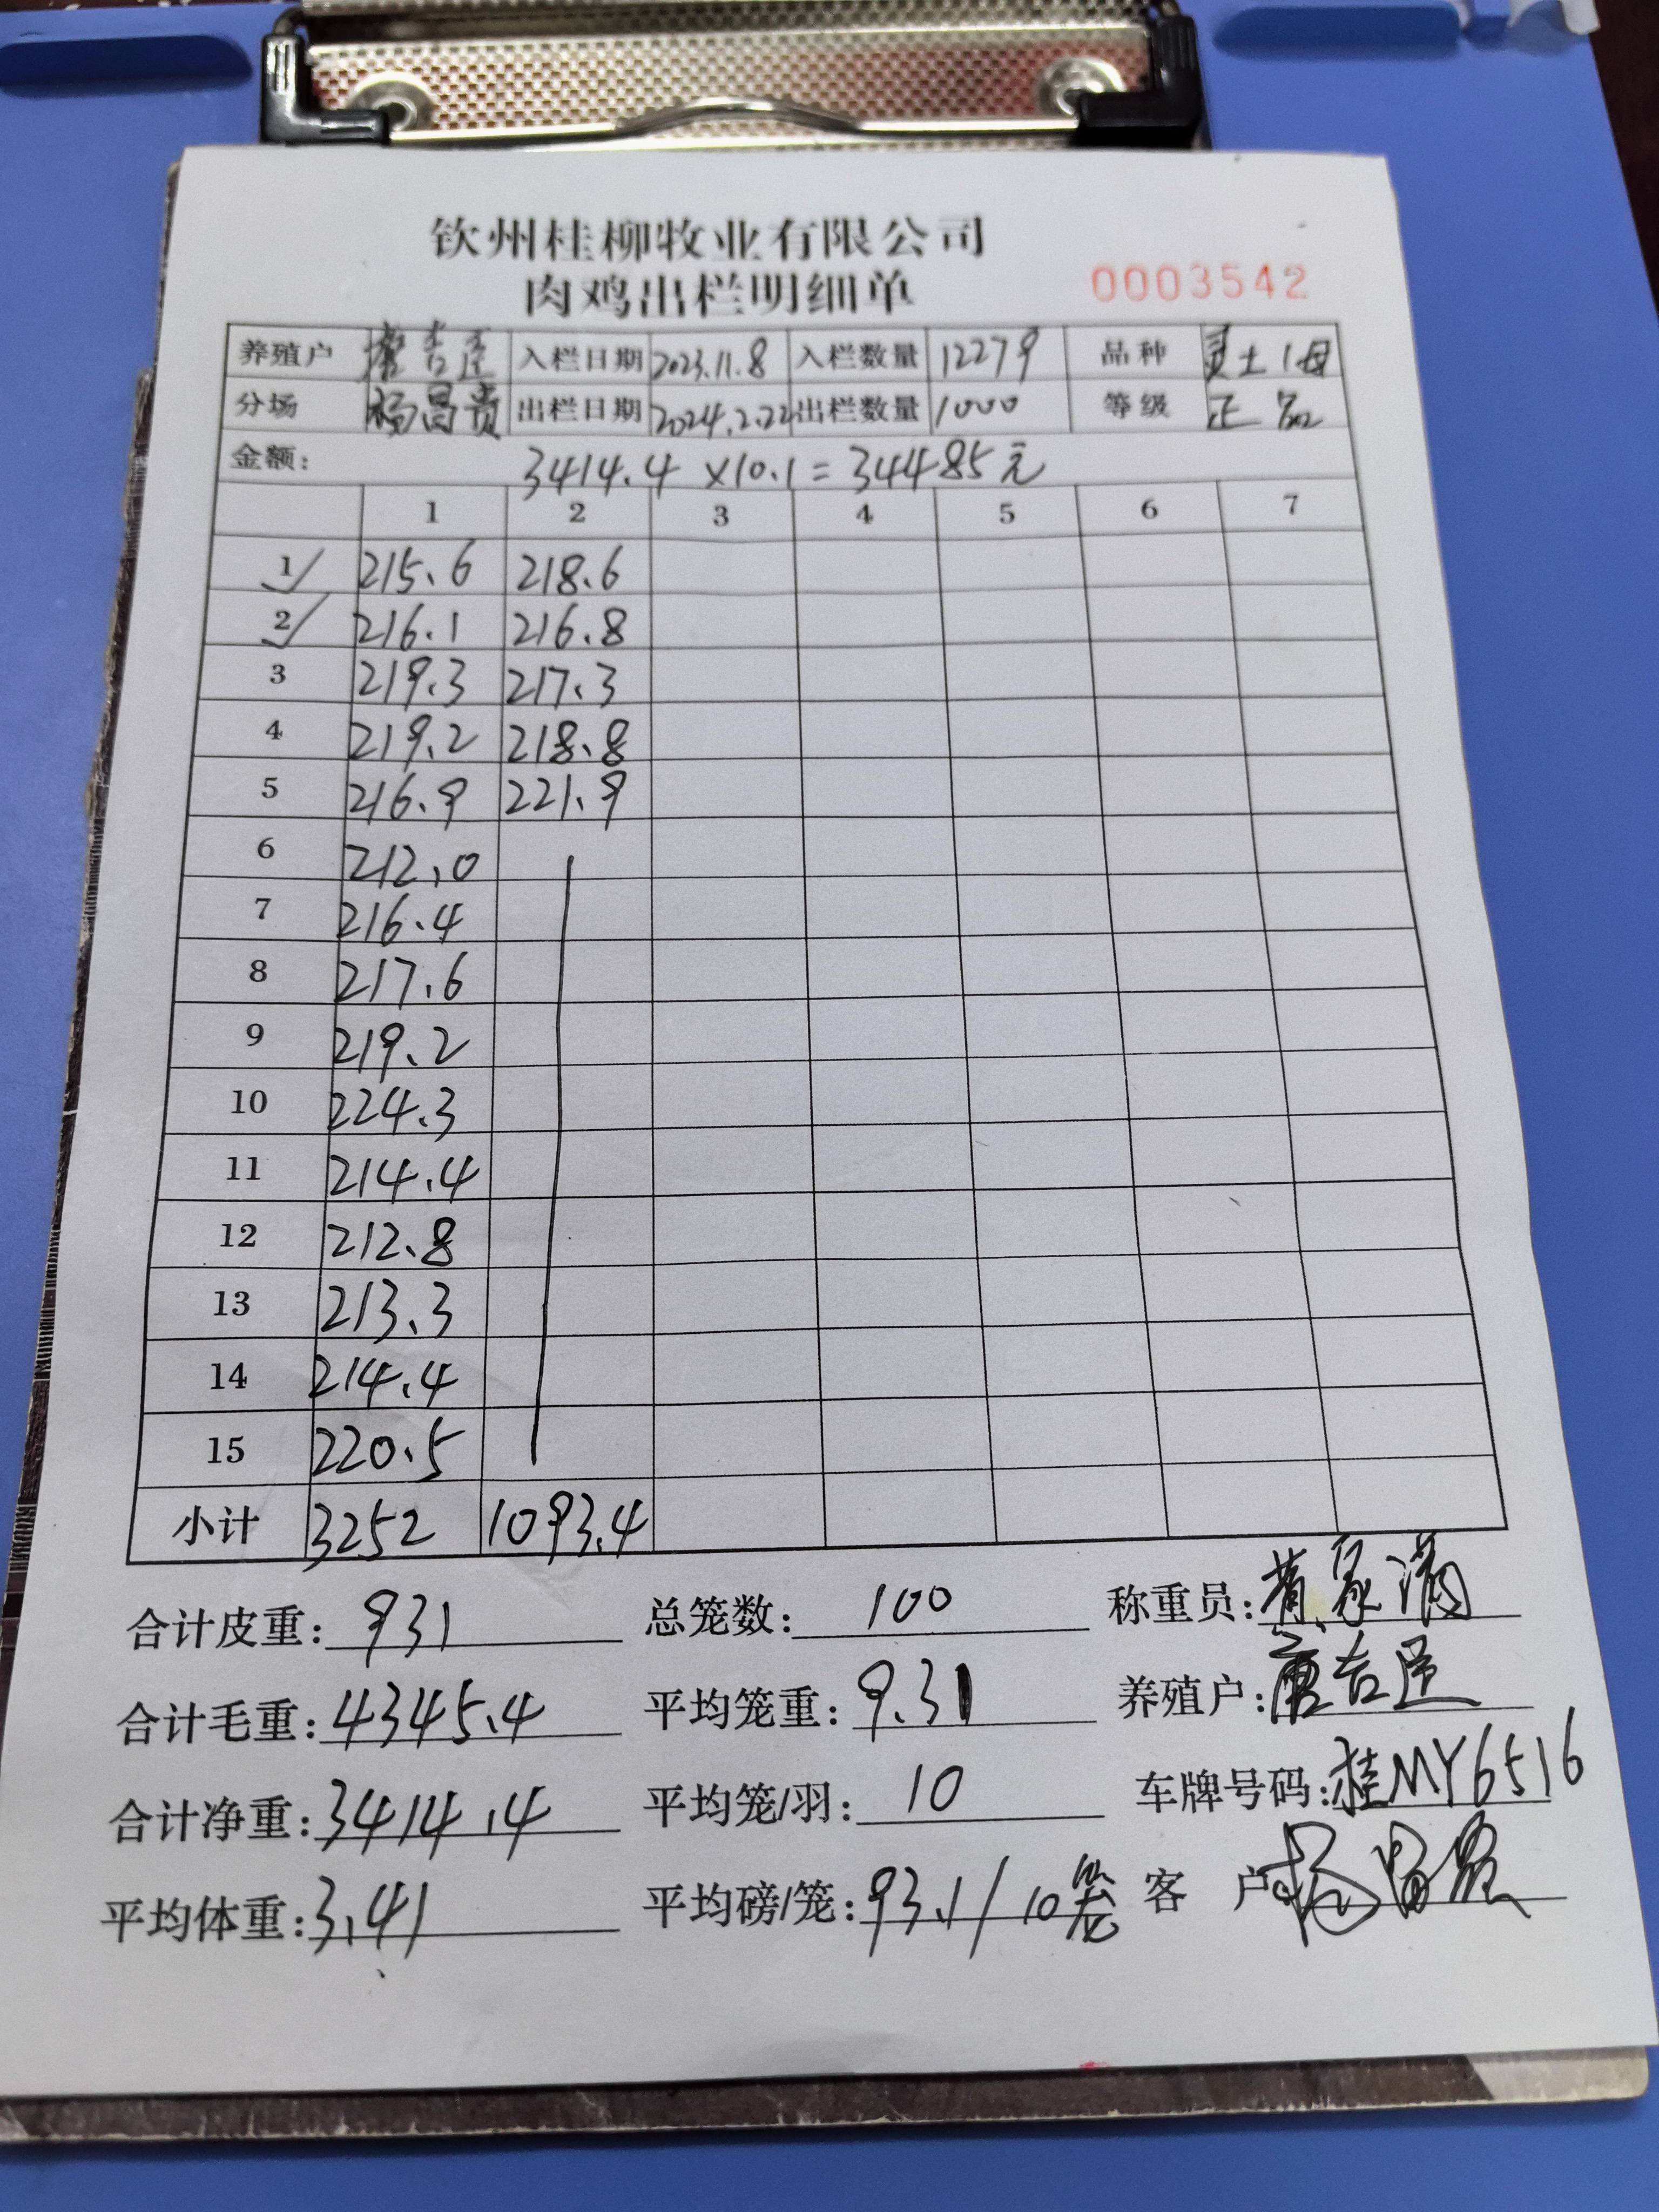 钦州桂柳牧业有限公司
肉鸡出栏明细单 0003542
养殖户 入栏日期 2023.11.8 入栏数量 12279 品种 灵土1母
分场 杨昌贵 出栏日期 2024.2.22 出栏数量 1000 等级 正品
金额: 3414.4 ×10.1 = 34485元
1 2 3 4 5 6 7
1 215.6 218.6
2 216.1 216.8
3 219.3 217.3
4 219.2 218.8
5 216.9 221.9
6 212.0
7 216.4
8 217.6
9 219.2
10 224.3
11 214.4
12 212.8
13 213.3
14 214.4
15 220.5
小计 3252 1093.4
合计皮重: 931 总笼数: 100 称重员:
合计毛重: 4345.4 平均笼重: 9.31 养殖户:
合计净重: 3414.4 平均笼/羽: 10 车牌号码: 桂MY6516
平均体重: 3.41 平均磅/笼: 93.1/10笼 客户 杨昌贵